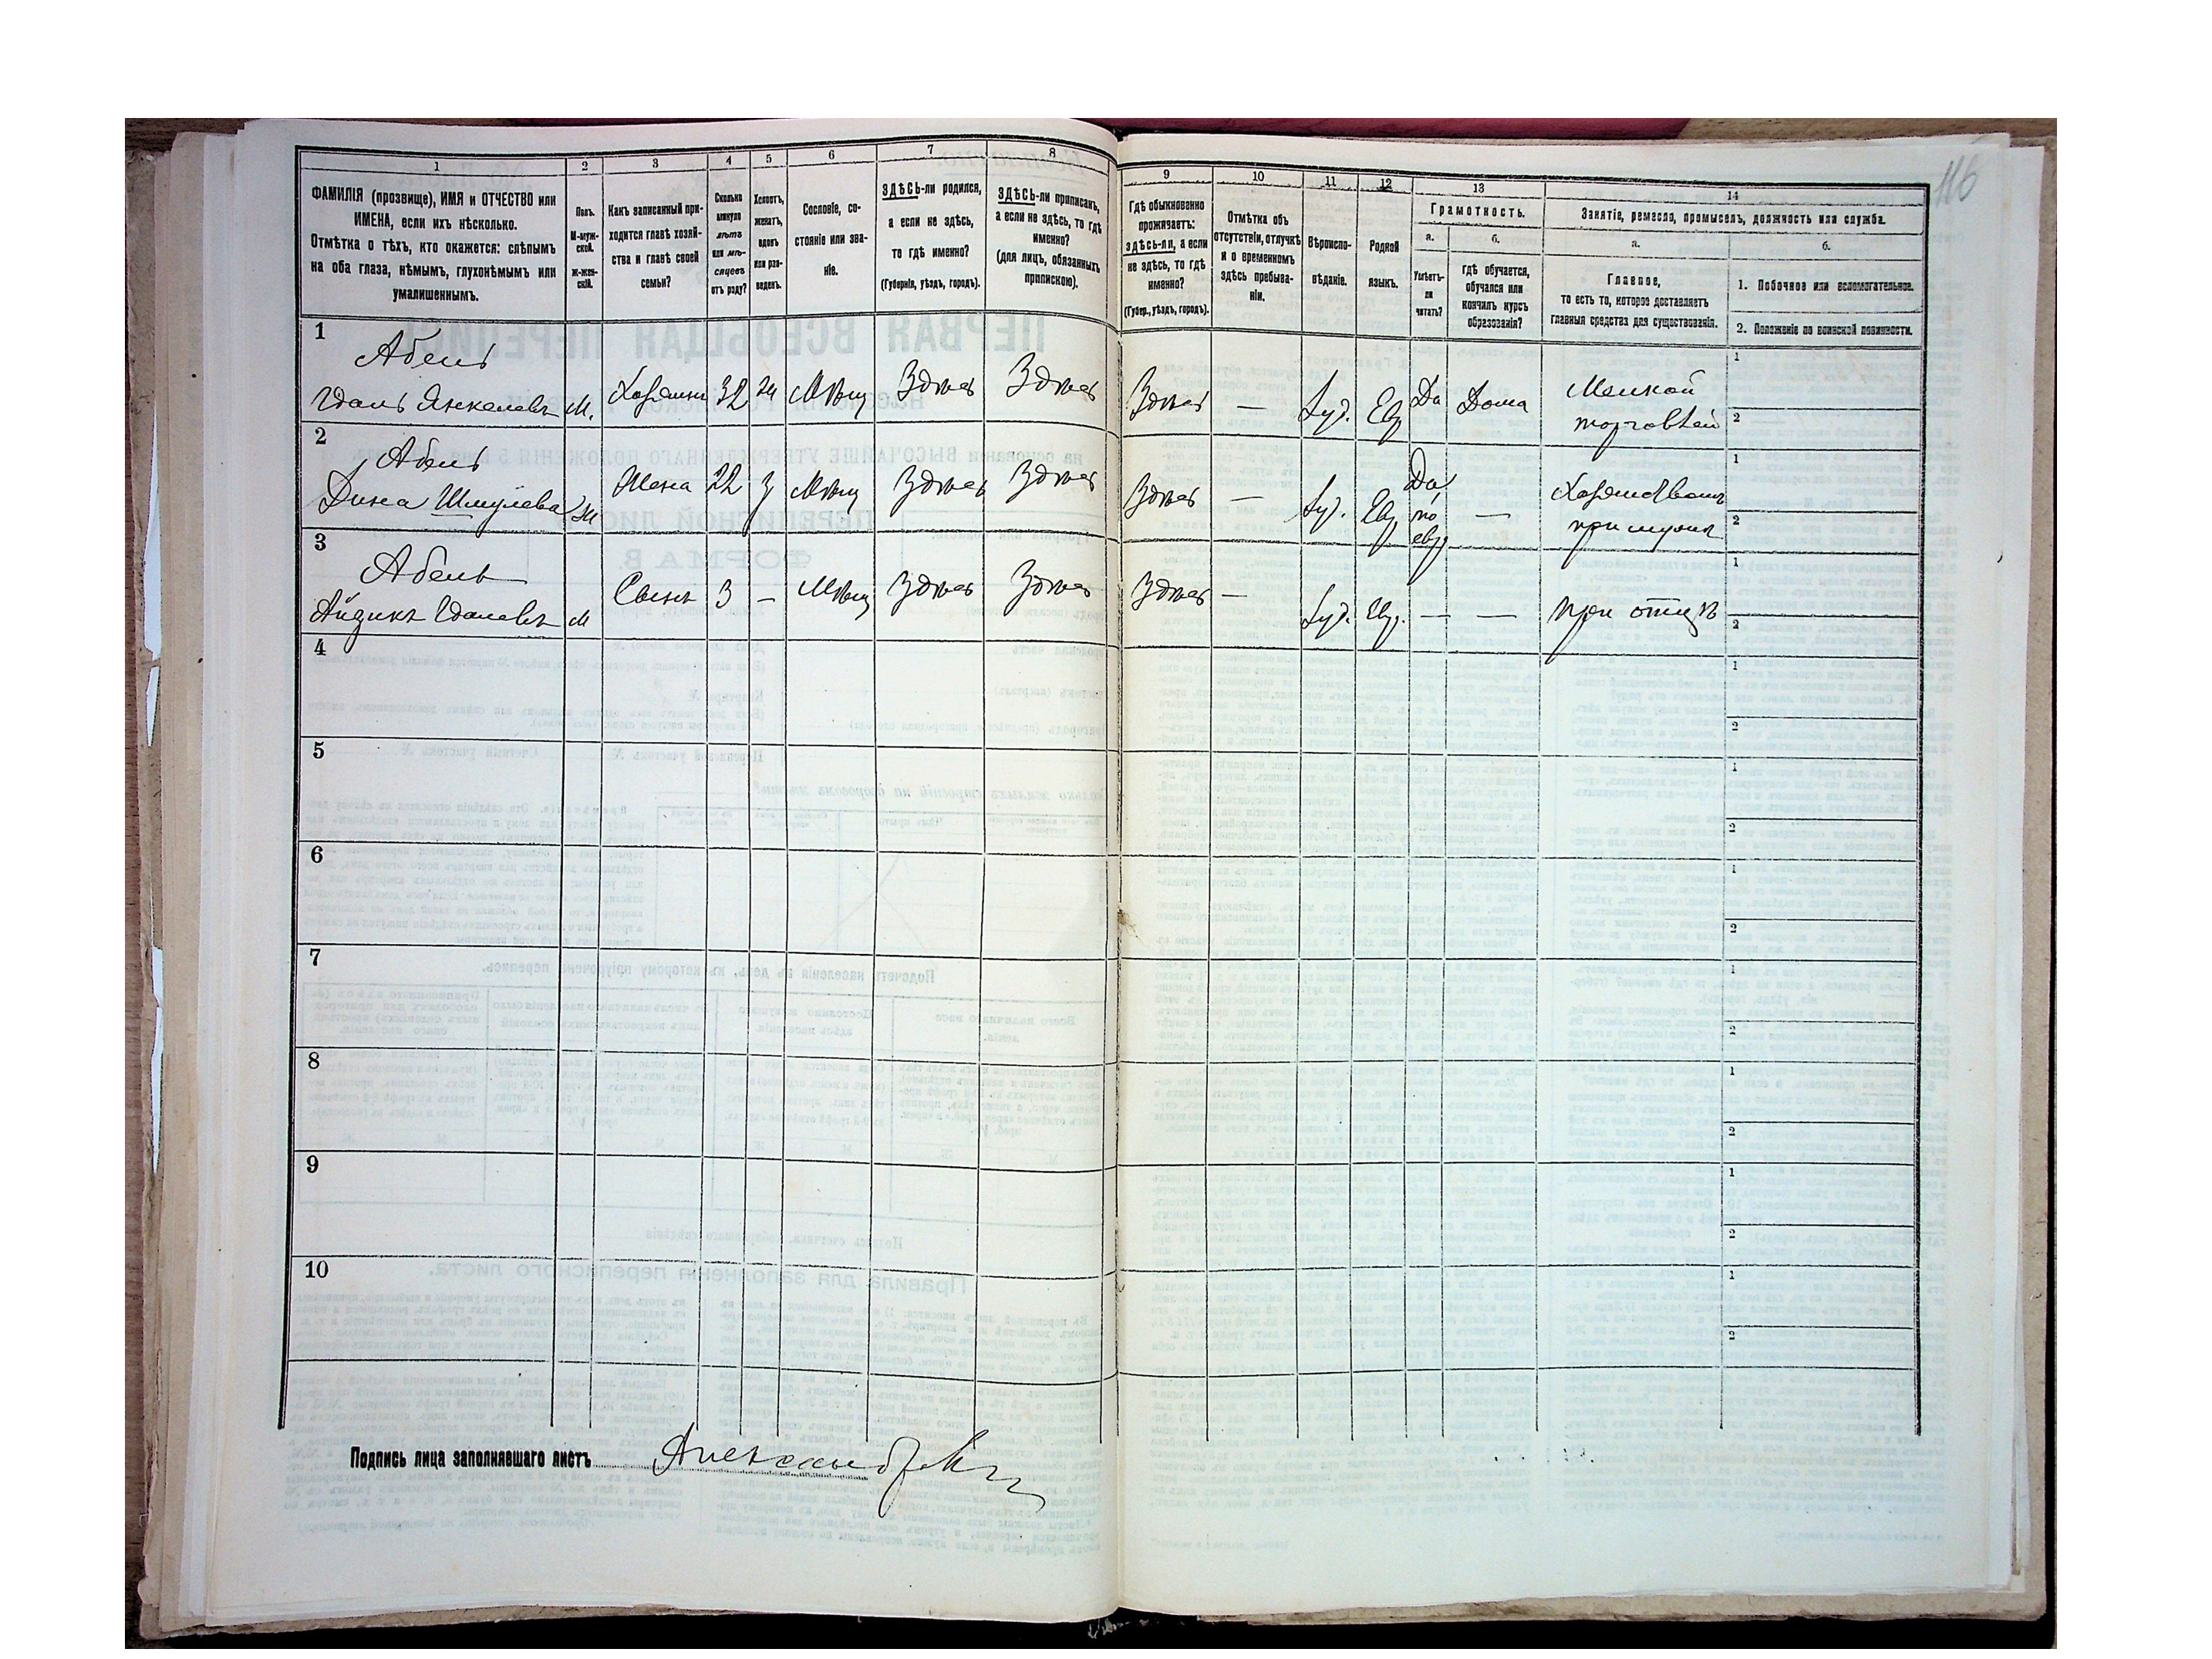 116
1 2 3 4 5 6 7 8 9 10 11 12 13 14
ФАМИЛІЯ (прозвище), ИМЯ и ОТЧЕСТВО или
ИМЕНА, если ихъ нѣсколько.
Отмѣтка о тѣхъ, кто окажется: слѣпымъ
на оба глаза, нѣмымъ, глухонѣмымъ или
умалишеннымъ.
Полъ.
М-муж-
ской.
Ж-жен-
скій.
Какъ записанный при-
ходится главѣ хозяй-
ства и главѣ своей
семьи?
Сколько
минуло
лѣтъ
или мѣ-
сяцевъ
отъ роду?
Холостъ,
женатъ,
вдовъ
или раз-
веденъ.
Сословіе, со-
стояніе или зва-
ніе.
ЗДѢСЬ-ли родился,
а если не здѣсь,
то гдѣ именно?
(Губернія, уѣздъ, городъ).
ЗДѢСЬ-ли приписанъ,
а если не здѣсь, то гдѣ
именно?
(для лицъ, обязанныхъ
припискою).
Гдѣ обыкновенно
проживаетъ:
здѣсь-ли, а если
не здѣсь, то гдѣ
именно?
(Губер., уѣздъ, городъ).
Отмѣтка объ
отсутствіи, отлучкѣ
и о временномъ
здѣсь пребыва-
ніи.
Вѣроиспо-
вѣданіе.
Родной
языкъ.
Грамотность.
а.
Умѣетъ-
ли
читать?
б.
гдѣ обучается,
обучался или
кончилъ курсъ
образованія?
Занятіе, ремесло, промыселъ, должность или служба.
а.
Главное,
то есть то, которое доставляетъ
главныя средства для существованія.
б.
1. Побочное или вспомогательное.
2. Положеніе по воинской повинности.
1
Абель
Гдаль Янкелевъ М. Хозяинъ 32 ж Мѣщ Здѣсь Здѣсь Здѣсь — Іуд. Евр Да Дома Мелкой
торговлей
2
Абель
Дина Шмулева Ж Жена 22 з Мѣщ Здѣсь Здѣсь Здѣсь — Іуд. Евр. Да
по
евр. —
при мужѣ
3
Абель
Айзикъ Гдалевъ М Сынъ 3 — Мѣщ Здѣсь Здѣсь Здѣсь — Іуд. Евр. — — при отцѣ
4
5
6
7
8
9
10
Подпись лица заполнявшаго листъ